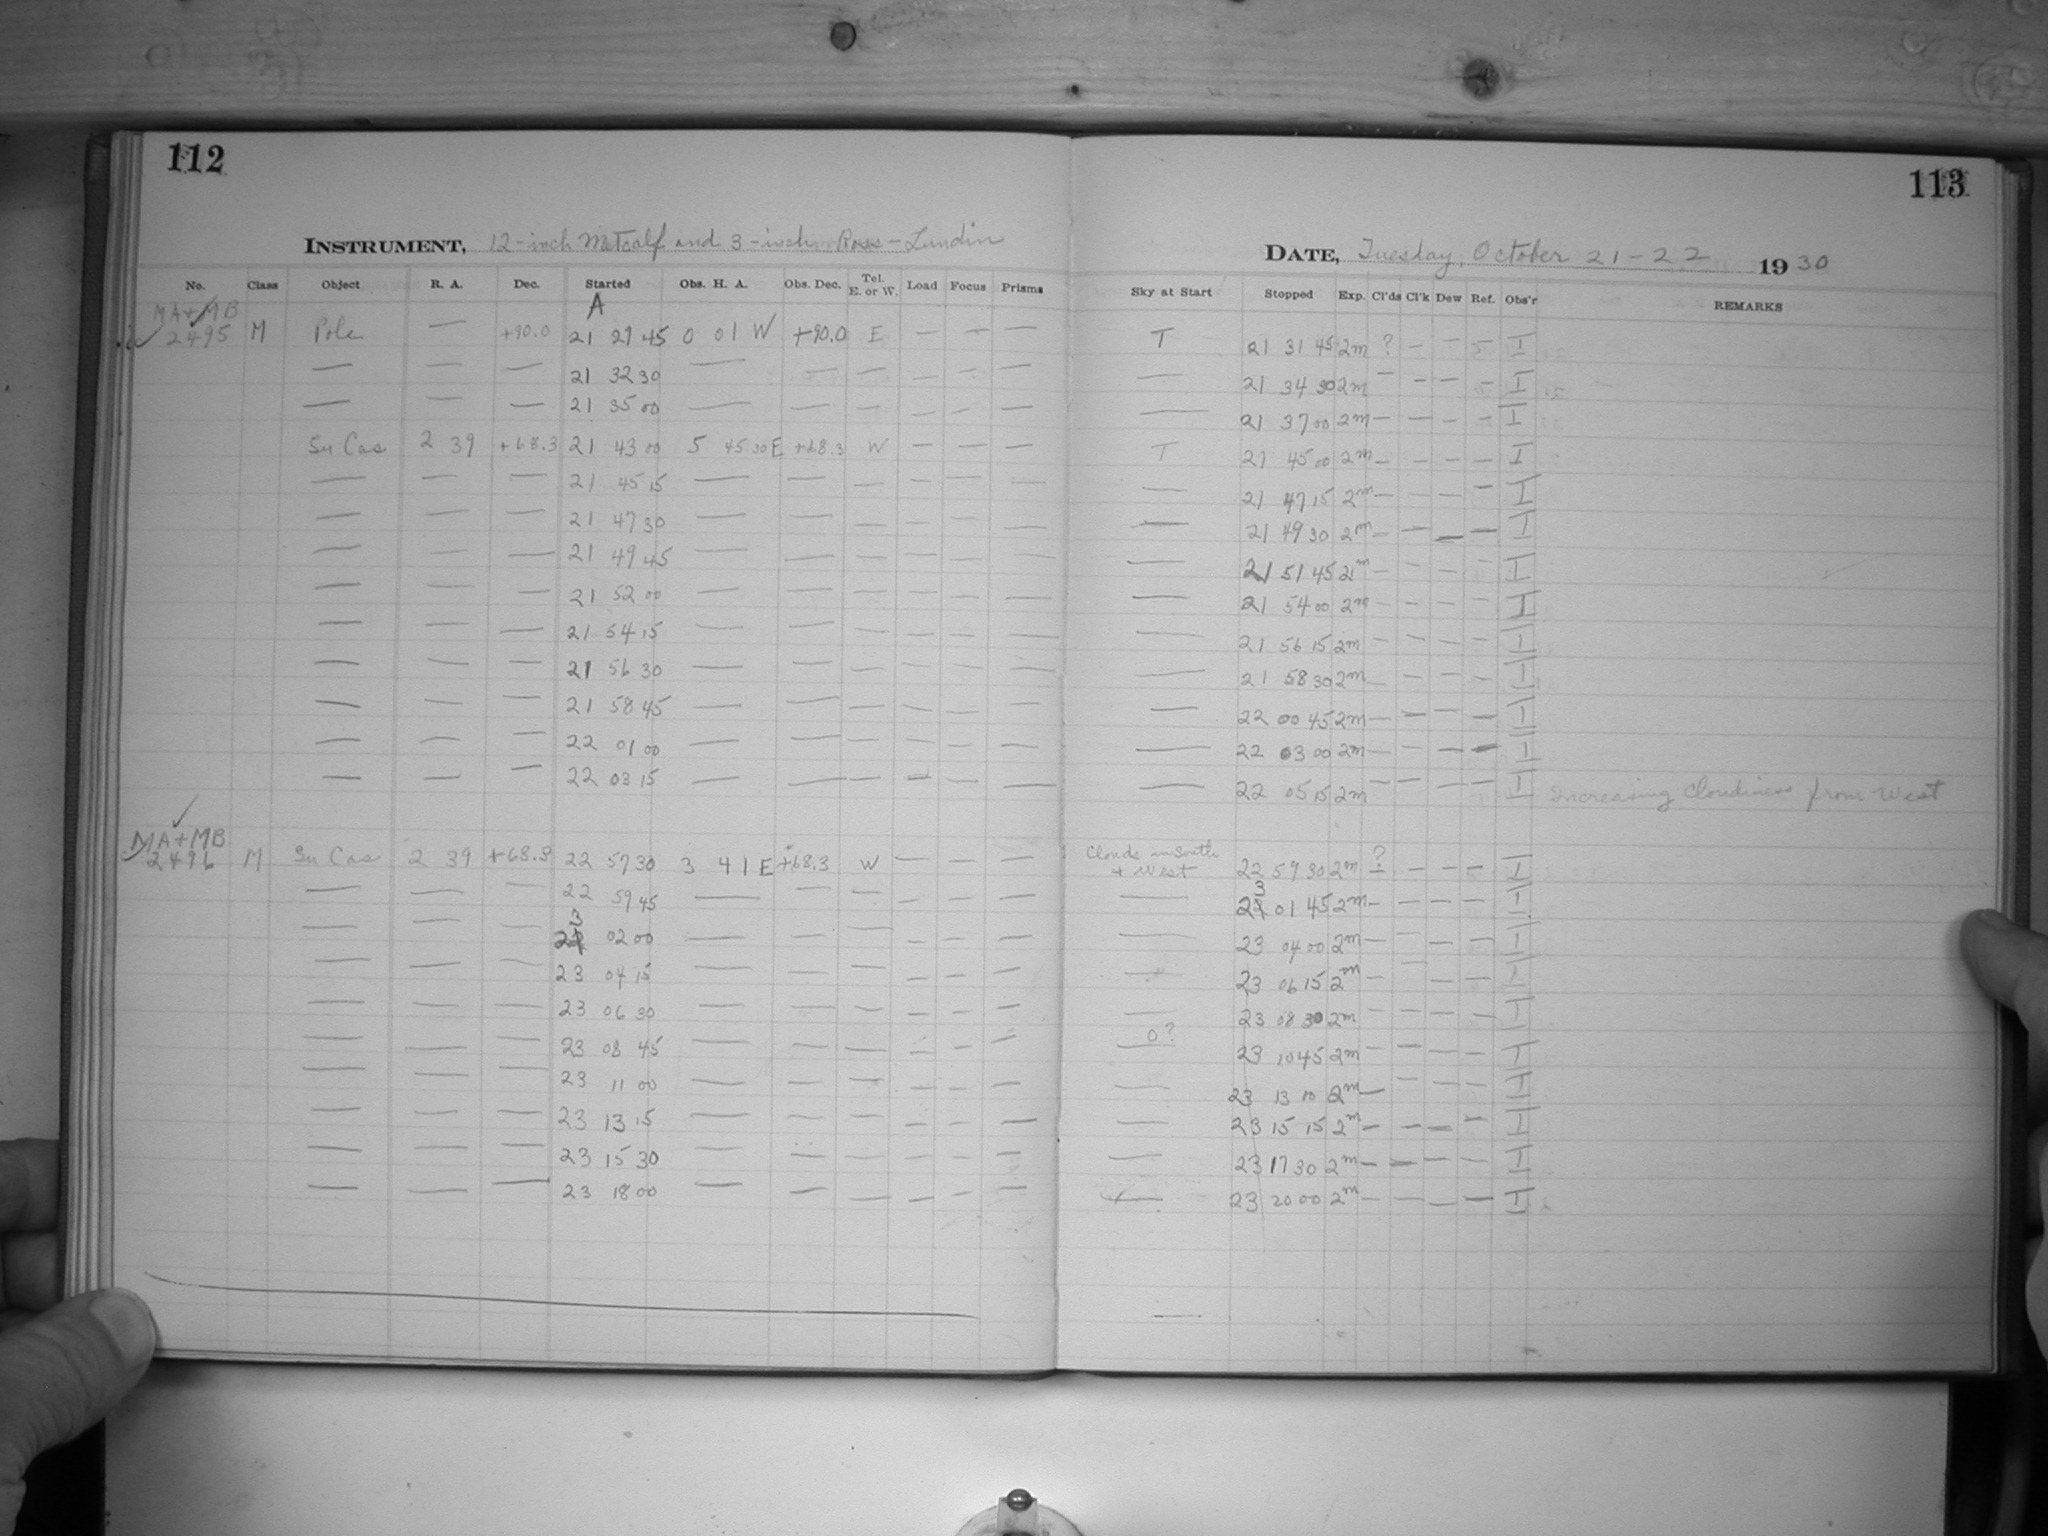 112
INSTRUMENT, 12-inch Metcalf and 3-inch Ross-Lundin
No. Class Object R. A. Dec. Started Obs. H. A. Obs. Dec. Tel. E. or W. Load Focus Prisms
A
MA+MB
2495 M Pole — +90.0 21 29 45 0 01 W +90.0 E — — —
— — — 21 32 30 — — — — — —
— — — 21 35 00 — — — — — —
Su Cas 2 39 +68.3 21 43 00 5 45 30 E +68.3 W — — —
— — — 21 45 15 — — — — — —
— — — 21 47 30 — — — — — —
— — — 21 49 45 — — — — — —
— — — 21 52 00 — — — — — —
— — — 21 54 15 — — — — — —
— — — 21 56 30 — — — — — —
— — — 21 58 45 — — — — — —
— — — 22 01 00 — — — — — —
— — — 22 03 15 — — — — — —
MA+MB
2496 M Su Cas 2 39 +68.3 22 57 30 3 41 E +68.3 W — — —
— — — 22 59 45 — — — — — —
— — — 23 02 00 — — — — — —
— — — 23 04 15 — — — — — —
— — — 23 06 30 — — — — — —
— — — 23 08 45 — — — — — —
— — — 23 11 00 — — — — — —
— — — 23 13 15 — — — — — —
— — — 23 15 30 — — — — — —
— — — 23 18 00 — — — — — —
113
DATE, Tuesday, October 21-22 1930
Sky at Start Stopped Exp. Cl'ds Cl'k Dew Ref. Obs'r REMARKS
T 21 31 45 2m ? — — — I
— 21 34 30 2m — — — — I
— 21 37 00 2m — — — I
T 21 45 00 2m — — — — I
— 21 47 15 2m — — — — I
— 21 49 30 2m — — — — I
— 21 51 45 2m — — — — I
— 21 54 00 2m — — — — I
— 21 56 15 2m — — — — I
— 21 58 30 2m — — — — I
— 22 00 45 2m — — — — I
— 22 03 00 2m — — — — I
— 22 05 15 2m — — — — I Increasing Cloudiness from West
Clouds in South
+ West 22 59 30 2m ? — — — I
— 23 01 45 2m — — — — I
— 23 04 00 2m — — — — I
— 23 06 15 2m — — — — I
— 23 08 30 2m — — — — I
0? 23 10 45 2m — — — — I
— 23 13 00 2m — — — — I
— 23 15 15 2m — — — — I
— 23 17 30 2m — — — — I
— 23 20 00 2m — — — — I